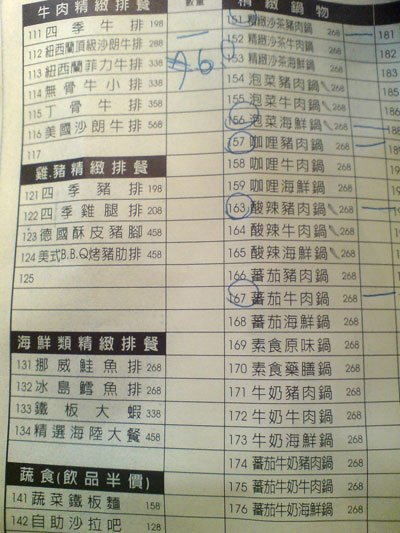 牛肉精緻排餐
111 四季牛排 198
112 紐西蘭頂級沙朗牛排 288
113 紐西蘭菲力牛排 338
114 無骨牛小排 338
115 丁骨牛排 358
116 美國沙朗牛排 568
117
雞.豬精緻排餐
121 四季豬排 198
122 四季雞腿排 208
123 德國酥皮豬腳 458
124 美式B.B.Q烤豬肋排 458
125
海鮮類精緻排餐
131 挪威鮭魚排 268
132 冰島鱈魚排 268
133 鐵板大蝦 338
134 精選海陸大餐 458
蔬食(飲品半價)
141 蔬菜鐵板麵 158
142 自助沙拉吧 128
數量
精緻鍋物
151 精緻沙茶豬肉鍋 268
152 精緻沙茶牛肉鍋 268
153 精緻沙茶海鮮鍋 268
154 泡菜豬肉鍋 268
155 泡菜牛肉鍋 268
156 泡菜海鮮鍋 268
157 咖哩豬肉鍋 268
158 咖哩牛肉鍋 268
159 咖哩海鮮鍋 268
163 酸辣豬肉鍋 268
164 酸辣牛肉鍋 268
165 酸辣海鮮鍋 268
166 蕃茄豬肉鍋 268
167 蕃茄牛肉鍋 268
168 蕃茄海鮮鍋 268
169 素食原味鍋 268
170 素食藥膳鍋 268
171 牛奶豬肉鍋 268
172 牛奶牛肉鍋 268
173 牛奶海鮮鍋 268
174 蕃茄牛奶豬肉鍋 268
175 蕃茄牛奶牛肉鍋 268
176 蕃茄牛奶海鮮鍋 268
181